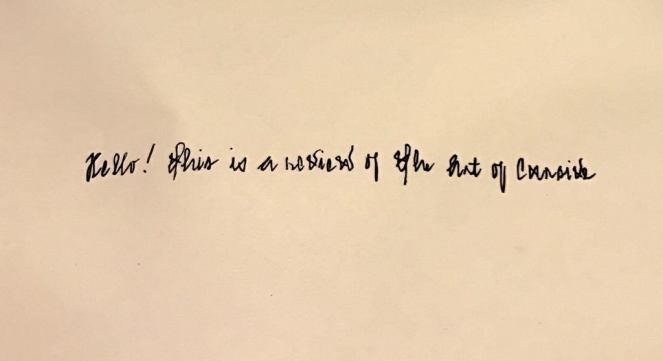 Hello! This is a review of the Art of Cursive